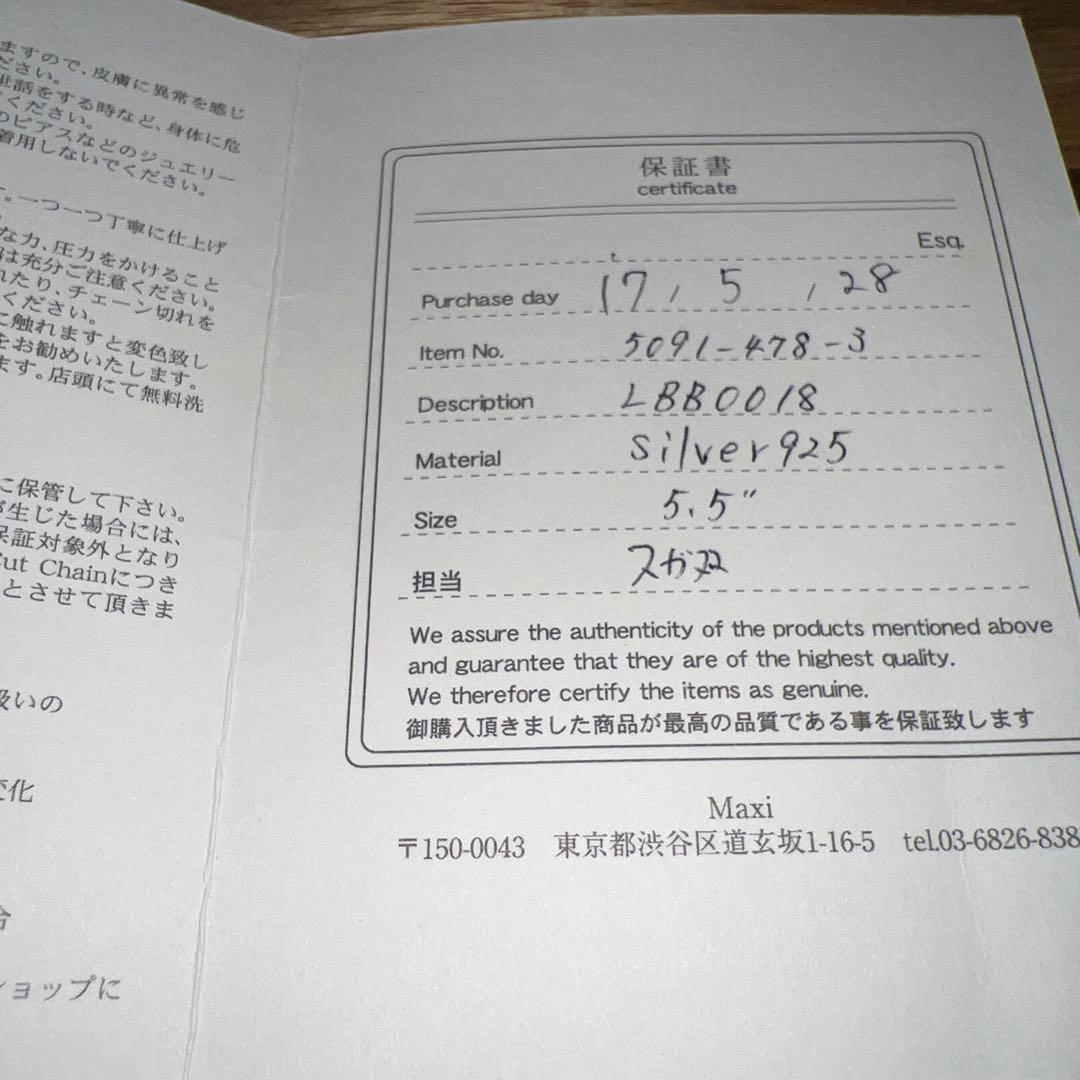 ますので、皮膚に異常を感じ
ださい。
世話をする時など、身体に危
ください。
のピアスなどのジュエリー
着用しないでください。
。一つ一つ丁寧に仕上げ
な力、圧力をかけること
は充分ご注意ください。
れたり、チェーン切れを
ください。
に触れますと変色致し
をお勧めいたします。
ます。店頭にて無料洗
に保管して下さい。
が生じた場合には、
保証対象外となり
Cut Chainにつき
とさせて頂きま
扱いの
変化
合
ショップに
保証書
certificate
Esq.
Purchase day 17, 5, 28
Item No. 5091-478-3
Description LBB0018
Material silver925
Size 5.5"
担当 スガヌ
We assure the authenticity of the products mentioned above
and guarantee that they are of the highest quality.
We therefore certify the items as genuine.
御購入頂きました商品が最高の品質である事を保証致します
Maxi
〒150-0043 東京都渋谷区道玄坂1-16-5 tel.03-6826-838